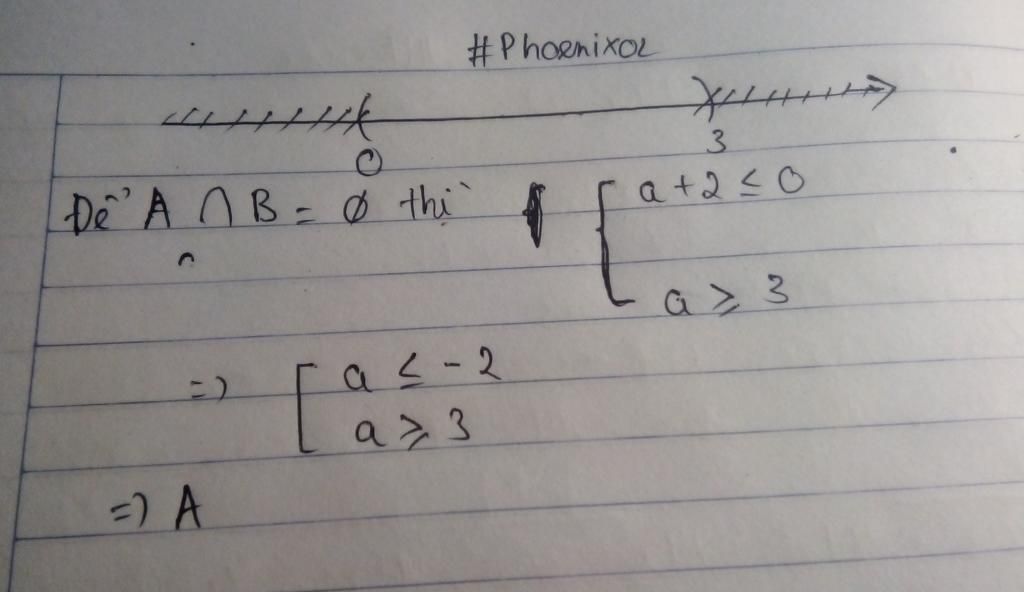 #Phoenixoz
0 3
Để A ∩ B = ∅ thì [ a + 2 ≤ 0
a ≥ 3
=> [ a ≤ - 2
a ≥ 3
=> A